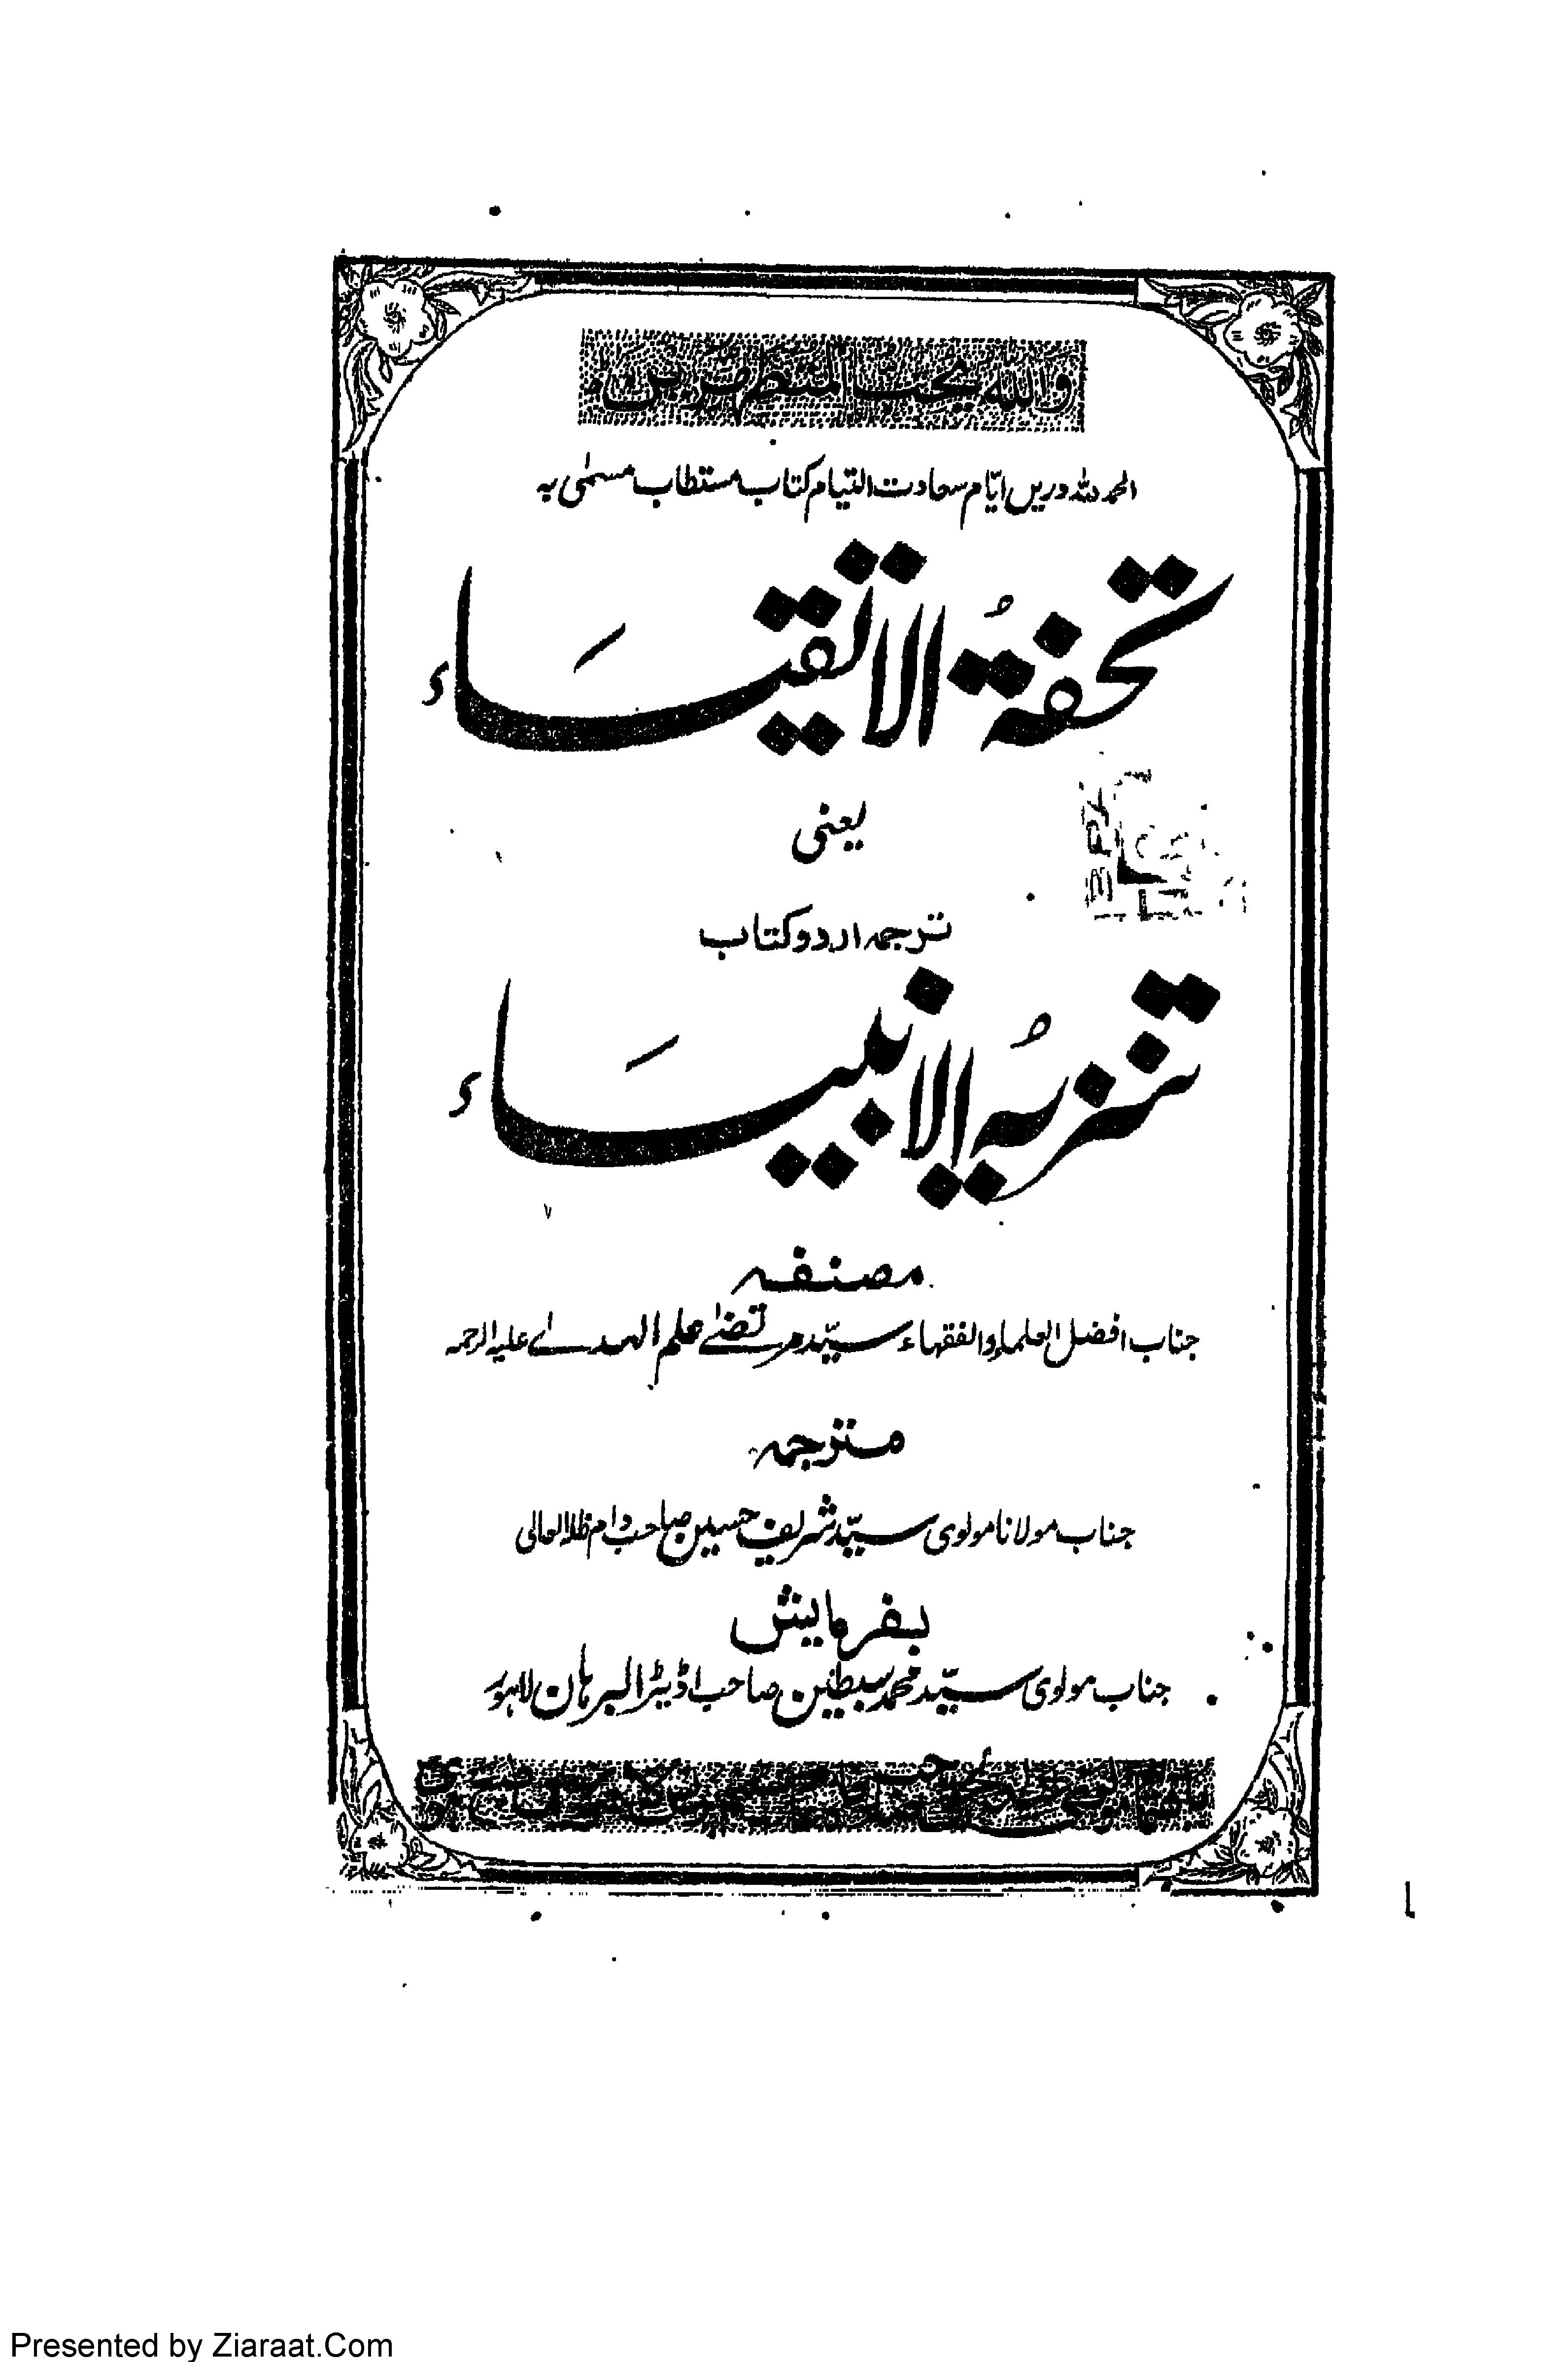 والله يحب المتطهرين
الحمد للہ دریں ایّام سعادت التیام کتاب مستطاب مسمٰی بہ
تحفۃُ الاتقیَاء
یعنی
ترجمہ اردو کتاب
تنزیہُ الانبیَاء
مصنفہ
جناب افضل العلماء والفقہاء سیّد مرتضےٰ علم الہدےٰ علیہ الرحمہ
مترجمہ
جناب مولانا مولوی سیّد شریف حسین صاحب دام ظلہ العالی
بفرمایش
جناب مولوی سیّد محمد سبطین صاحب اڈیٹر البرہان لاہور
1
Presented by Ziaraat.Com